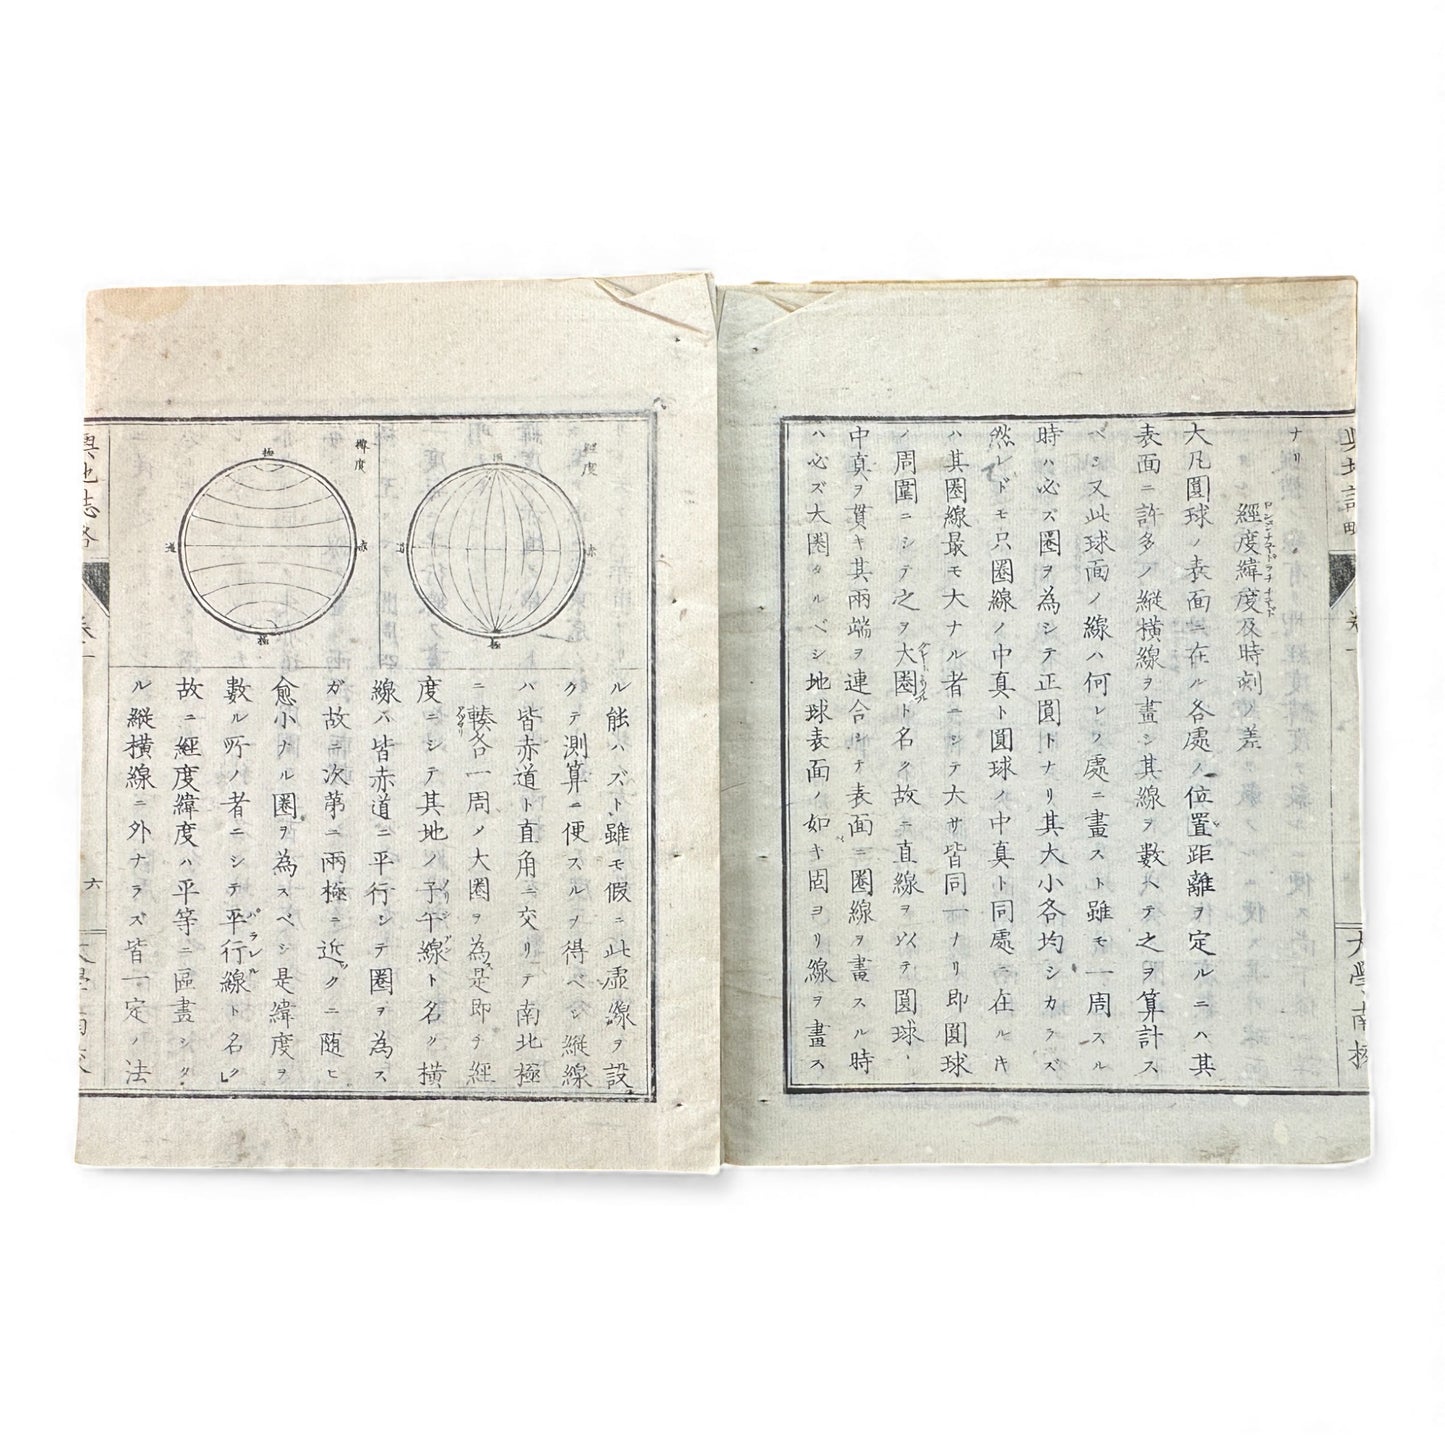 ナリ
經度緯度及時刻ノ差
ロンヂチュードラチチュード
大凡圓球ノ表面ニ在ル各處ノ位置距離ヲ定ルニハ其
表面ニ許多ノ縱橫線ヲ畫シ其線ヲ數ヘテ之ヲ算計ス
ベシ又此球面ノ線ハ何レノ處ニ畫スト雖モ一周スル
時ハ必ズ圈ヲ為シテ正圓トナリ其大小各均シカラズ
然レドモ只圈線ノ中真ト圓球ノ中真ト同處ニ在ルキ
ハ其圈線最モ大ナル者ニシテ大サ皆同一ナリ即圓球
ノ周圍ニシテ之ヲ大圈ト名ク故ニ直線ヲ以テ圓球ノ
中真ヲ貫キ其兩端ヲ連合シテ表面ニ圈線ヲ畫スル時
ハ必ズ大圈タルベシ地球表面ノ如キ固ヨリ線ヲ畫ス
經度
極
赤
道
極
緯度
極
赤
道
極
ル能ハズト雖モ假ニ此虛線ヲ設
ケテ測算ニ便スルヲ得ベシ縱線
ハ皆赤道ト直角ニ交リテ南北極
ニ輳合一周ノ大圈ヲ為ス是即チ經
アツマリ
度ニシテ其地ノ子午線ト名ク橫
線ハ皆赤道ニ平行シテ圈ヲ為ス
ガ故ニ次第ニ兩極ニ近ヅクニ随ヒ
愈小ナル圈ヲ為スベシ是緯度ヲ
數ル所ノ者ニシテ平行線ト名ク
パラレル
故ニ經度緯度ハ平等ニ區畫シタ
ル縱橫線ニ外ナラズ皆一定ノ法
輿地誌畧
卷一
六
大學南校